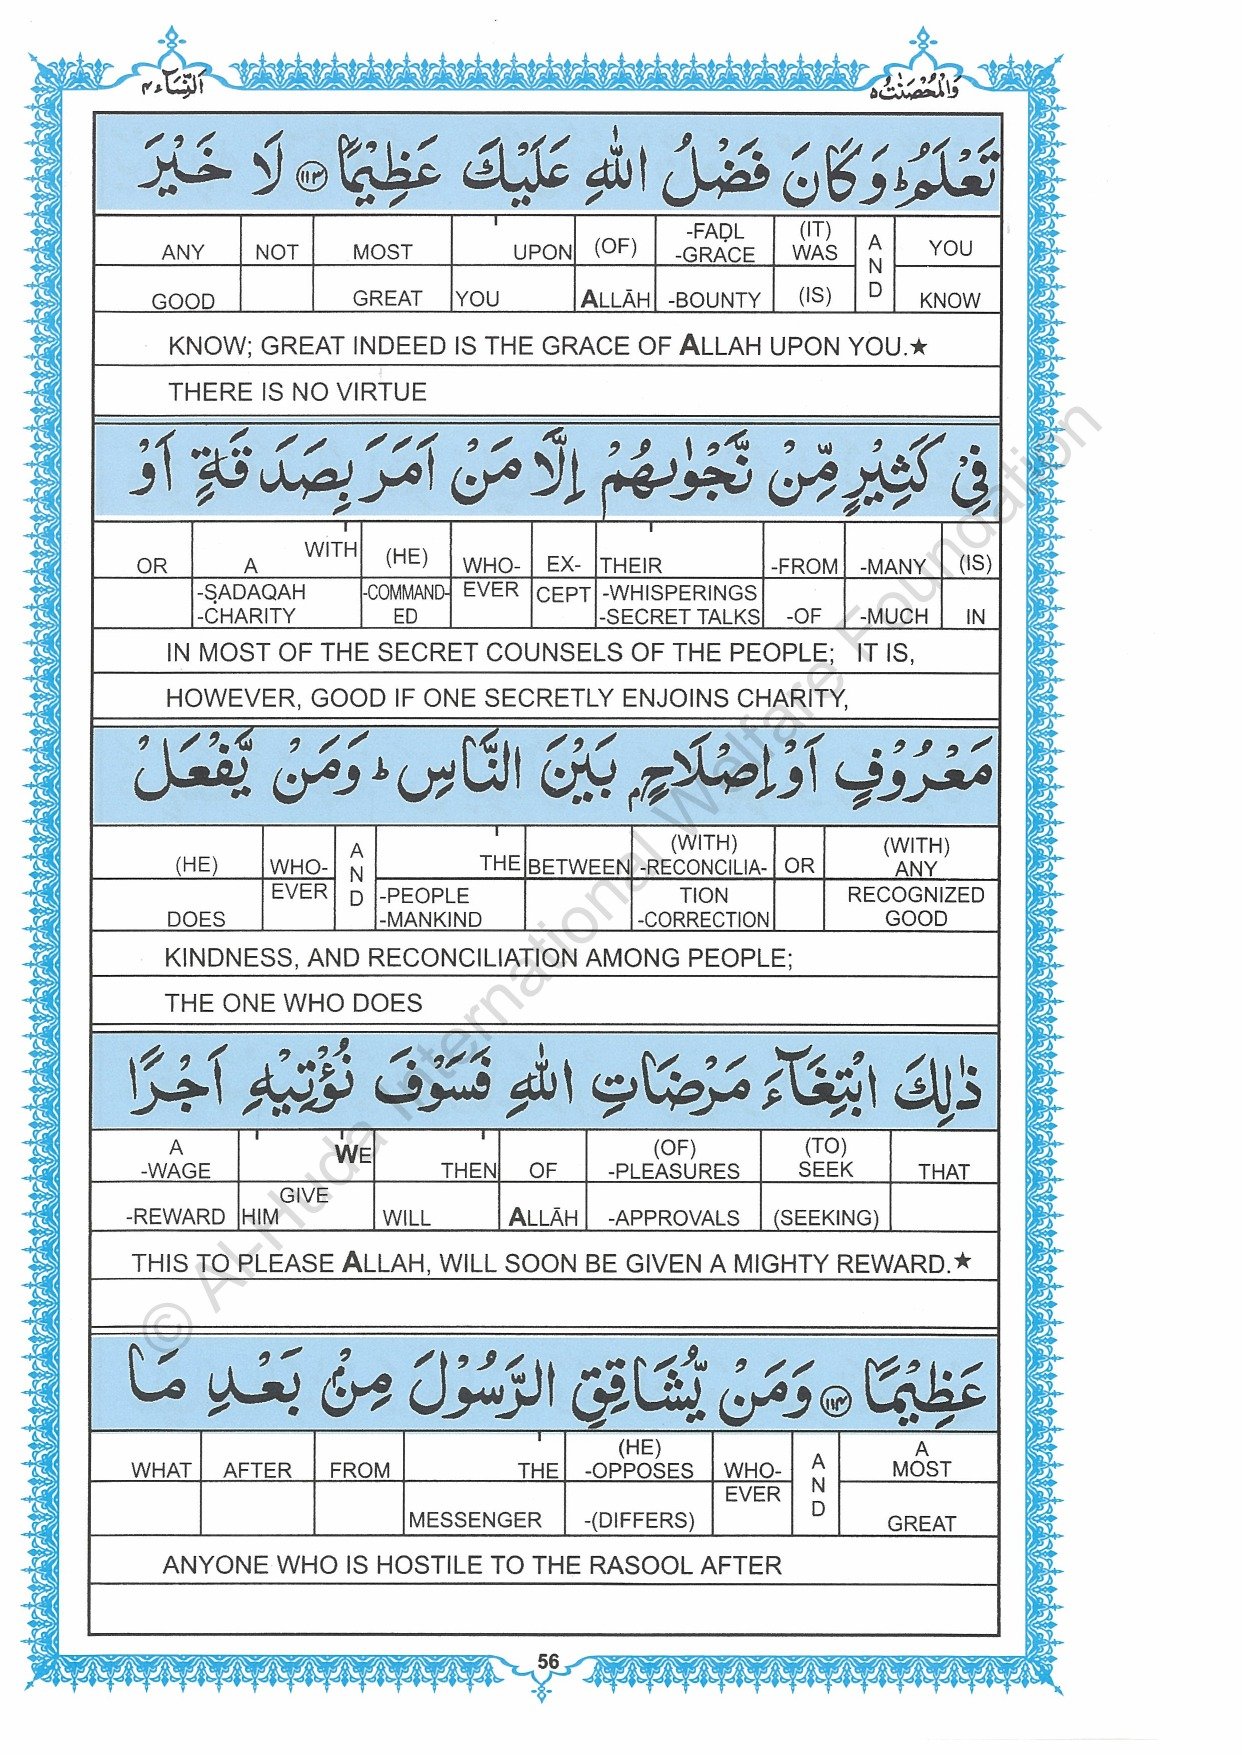 النِّسَآء ٤
وَالْمُحْصَنٰتُ ٥
تَعْلَمُ ؕ وَكَانَ فَضْلُ اللّٰهِ عَلَيْكَ عَظِيْمًا ۝١١٣ لَا خَيْرَ
ANY NOT MOST UPON (OF) -FAḌL -GRACE (IT) WAS AND YOU
GOOD GREAT YOU ALLĀH -BOUNTY (IS) KNOW
KNOW; GREAT INDEED IS THE GRACE OF ALLAH UPON YOU.★
THERE IS NO VIRTUE
فِيْ كَثِيْرٍ مِّنْ نَّجْوٰىهُمْ اِلَّا مَنْ اَمَرَ بِصَدَقَةٍ اَوْ
OR A WITH (HE) WHO- EX- THEIR -FROM -MANY (IS)
-ṢADAQAH -CHARITY -COMMAND-ED EVER CEPT -WHISPERINGS -SECRET TALKS -OF -MUCH IN
IN MOST OF THE SECRET COUNSELS OF THE PEOPLE; IT IS,
HOWEVER, GOOD IF ONE SECRETLY ENJOINS CHARITY,
مَعْرُوْفٍ اَوْ اِصْلَاحٍۭ بَيْنَ النَّاسِ ؕ وَمَنْ يَّفْعَلْ
(HE) WHO- AND THE BETWEEN (WITH) -RECONCILIA- OR (WITH) ANY
DOES EVER -PEOPLE -MANKIND TION -CORRECTION RECOGNIZED GOOD
KINDNESS, AND RECONCILIATION AMONG PEOPLE;
THE ONE WHO DOES
ذٰلِكَ ابْتِغَآءَ مَرْضَاتِ اللّٰهِ فَسَوْفَ نُؤْتِيْهِ اَجْرًا
A -WAGE WE THEN OF (OF) -PLEASURES (TO) SEEK THAT
-REWARD HIM GIVE WILL ALLĀH -APPROVALS (SEEKING)
THIS TO PLEASE ALLAH, WILL SOON BE GIVEN A MIGHTY REWARD.★
عَظِيْمًا ۝١١٤ وَمَنْ يُّشَاقِقِ الرَّسُوْلَ مِنْۢ بَعْدِ مَا
WHAT AFTER FROM THE (HE) -OPPOSES WHO- AND A MOST
MESSENGER -(DIFFERS) EVER GREAT
ANYONE WHO IS HOSTILE TO THE RASOOL AFTER
56
© Al-Huda International Welfare Foundation